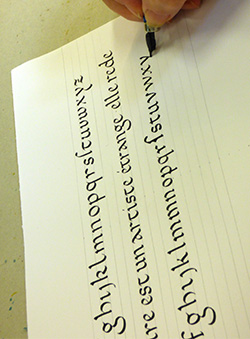 ghijklmnopqrsſtuvwxyz
re est un artiste etrange elle rede
fghijklmnopqrſstuvwxy